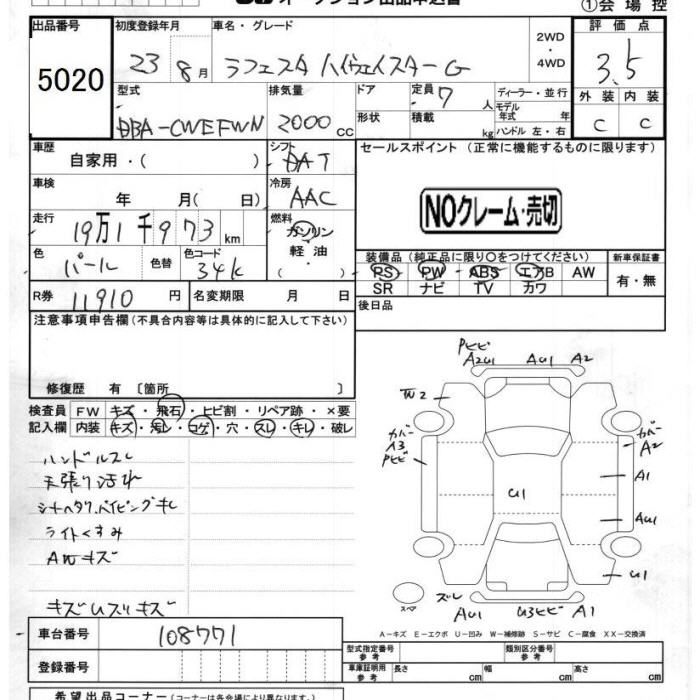 ①会場控
出品番号 初度登録年月 車名・グレード 評価点
5020 23 8月 ラフェスタ ハイウェイスターG 2WD・4WD 3.5
型式 排気量 ドア 定員 7人 ディーラー・並行 外装 内装
DBA-CWEFWN 2000cc 形状 積載 kg モデル年式 年 ハンドル左・右 C C
車歴 シフト セールスポイント(正常に機能するものに限ります)
自家用・( ) DAT
車検 冷房
年 月(日) AAC
走行 燃料 NOクレーム・売切
19万1千973km ガソリン
軽油
・( )
色 色替 色コード 装備品(純正品に限り○をつけてください) 新車保証書
パール 34K PS PW ABS エアB AW 有・無
R券 11910円 名変期限 月 日 SR ナビ TV カワ
注意事項申告欄(不具合内容等は具体的に記入して下さい) 後日品
修復歴 有 〔箇所 〕
検査員 FW キズ・飛石・ヒビ割・リペア跡・×要
記入欄 内装 キズ・汚レ・コゲ・穴・スレ・キレ・破レ
ハンドルスレ
天張り汚れ
シートヘタリ、パイピングキレ
ライトくすみ
AWキズ
キズUズリキズ
Pヒビ
A2U1 AU1 A2
カバー
A3
Pヒビ
カバー
A2
A1
U1
AU1
U1
スペア
ズレ
AU1 U3ヒビ A1
A-キズ E-エクボ U-凹み W-補修跡 S-サビ C-腐食 XX-交換済
車台番号 108771
型式指定番号 参考 類別区分番号 参考
登録番号 車庫証明用 参考 長さ cm 幅 cm 高さ cm
希望出品コーナー(コーナーは各会場により異なります。)